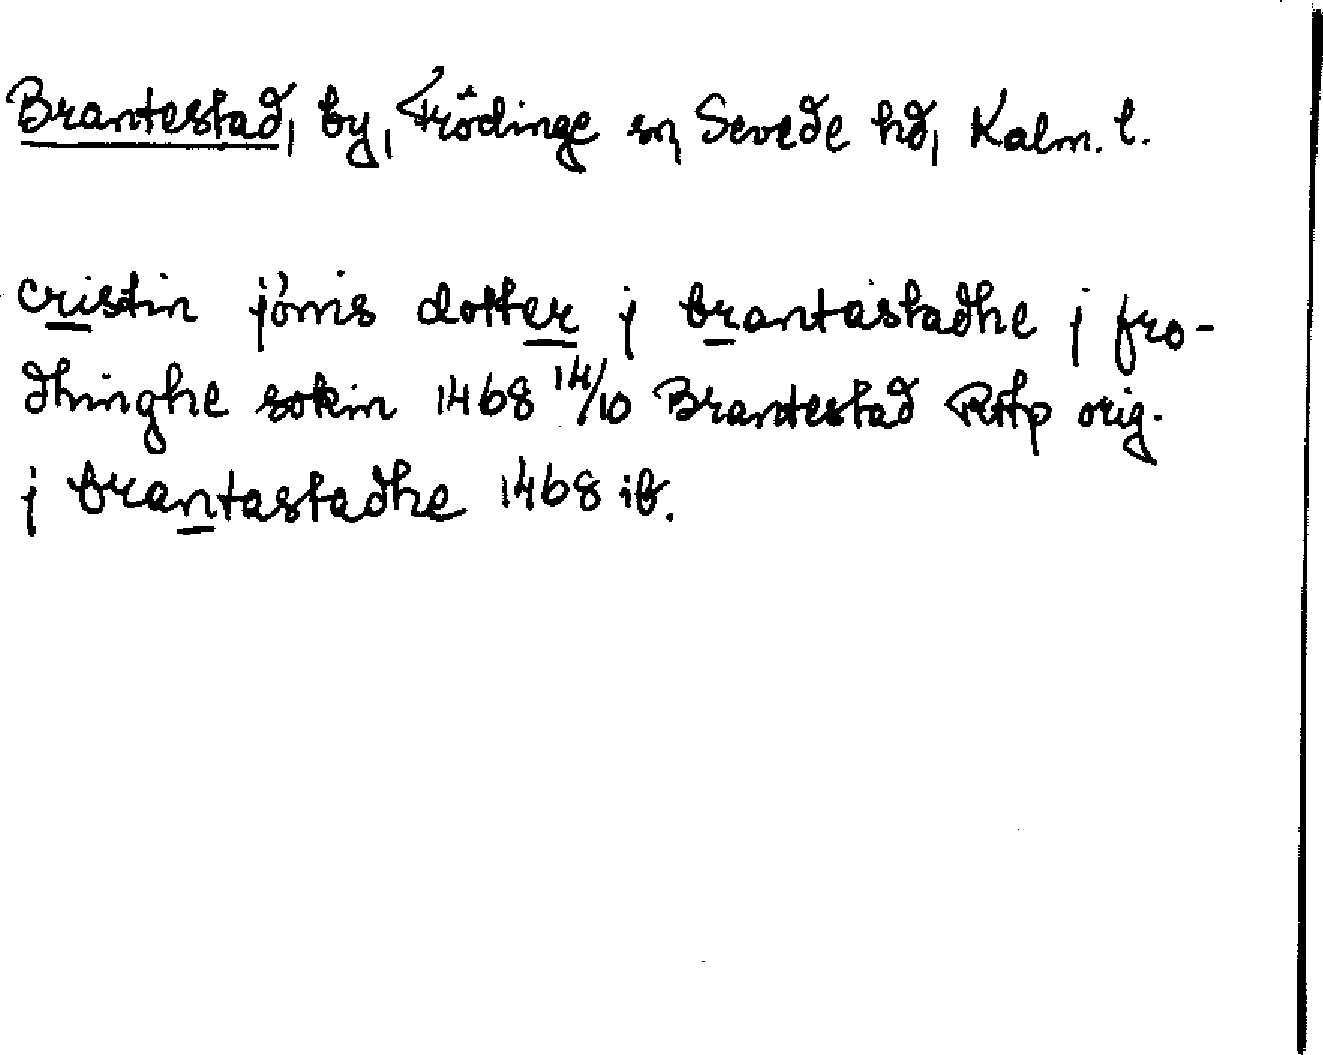 Brantestad, by, Frödinge sn, Sevede hd, Kalm. l.
cristin jönis dotter j brantastadhe j fro-
dhinghe sokin 1468 14/10 Brantestad RAp orig.
j brantastadhe 1468 ib.